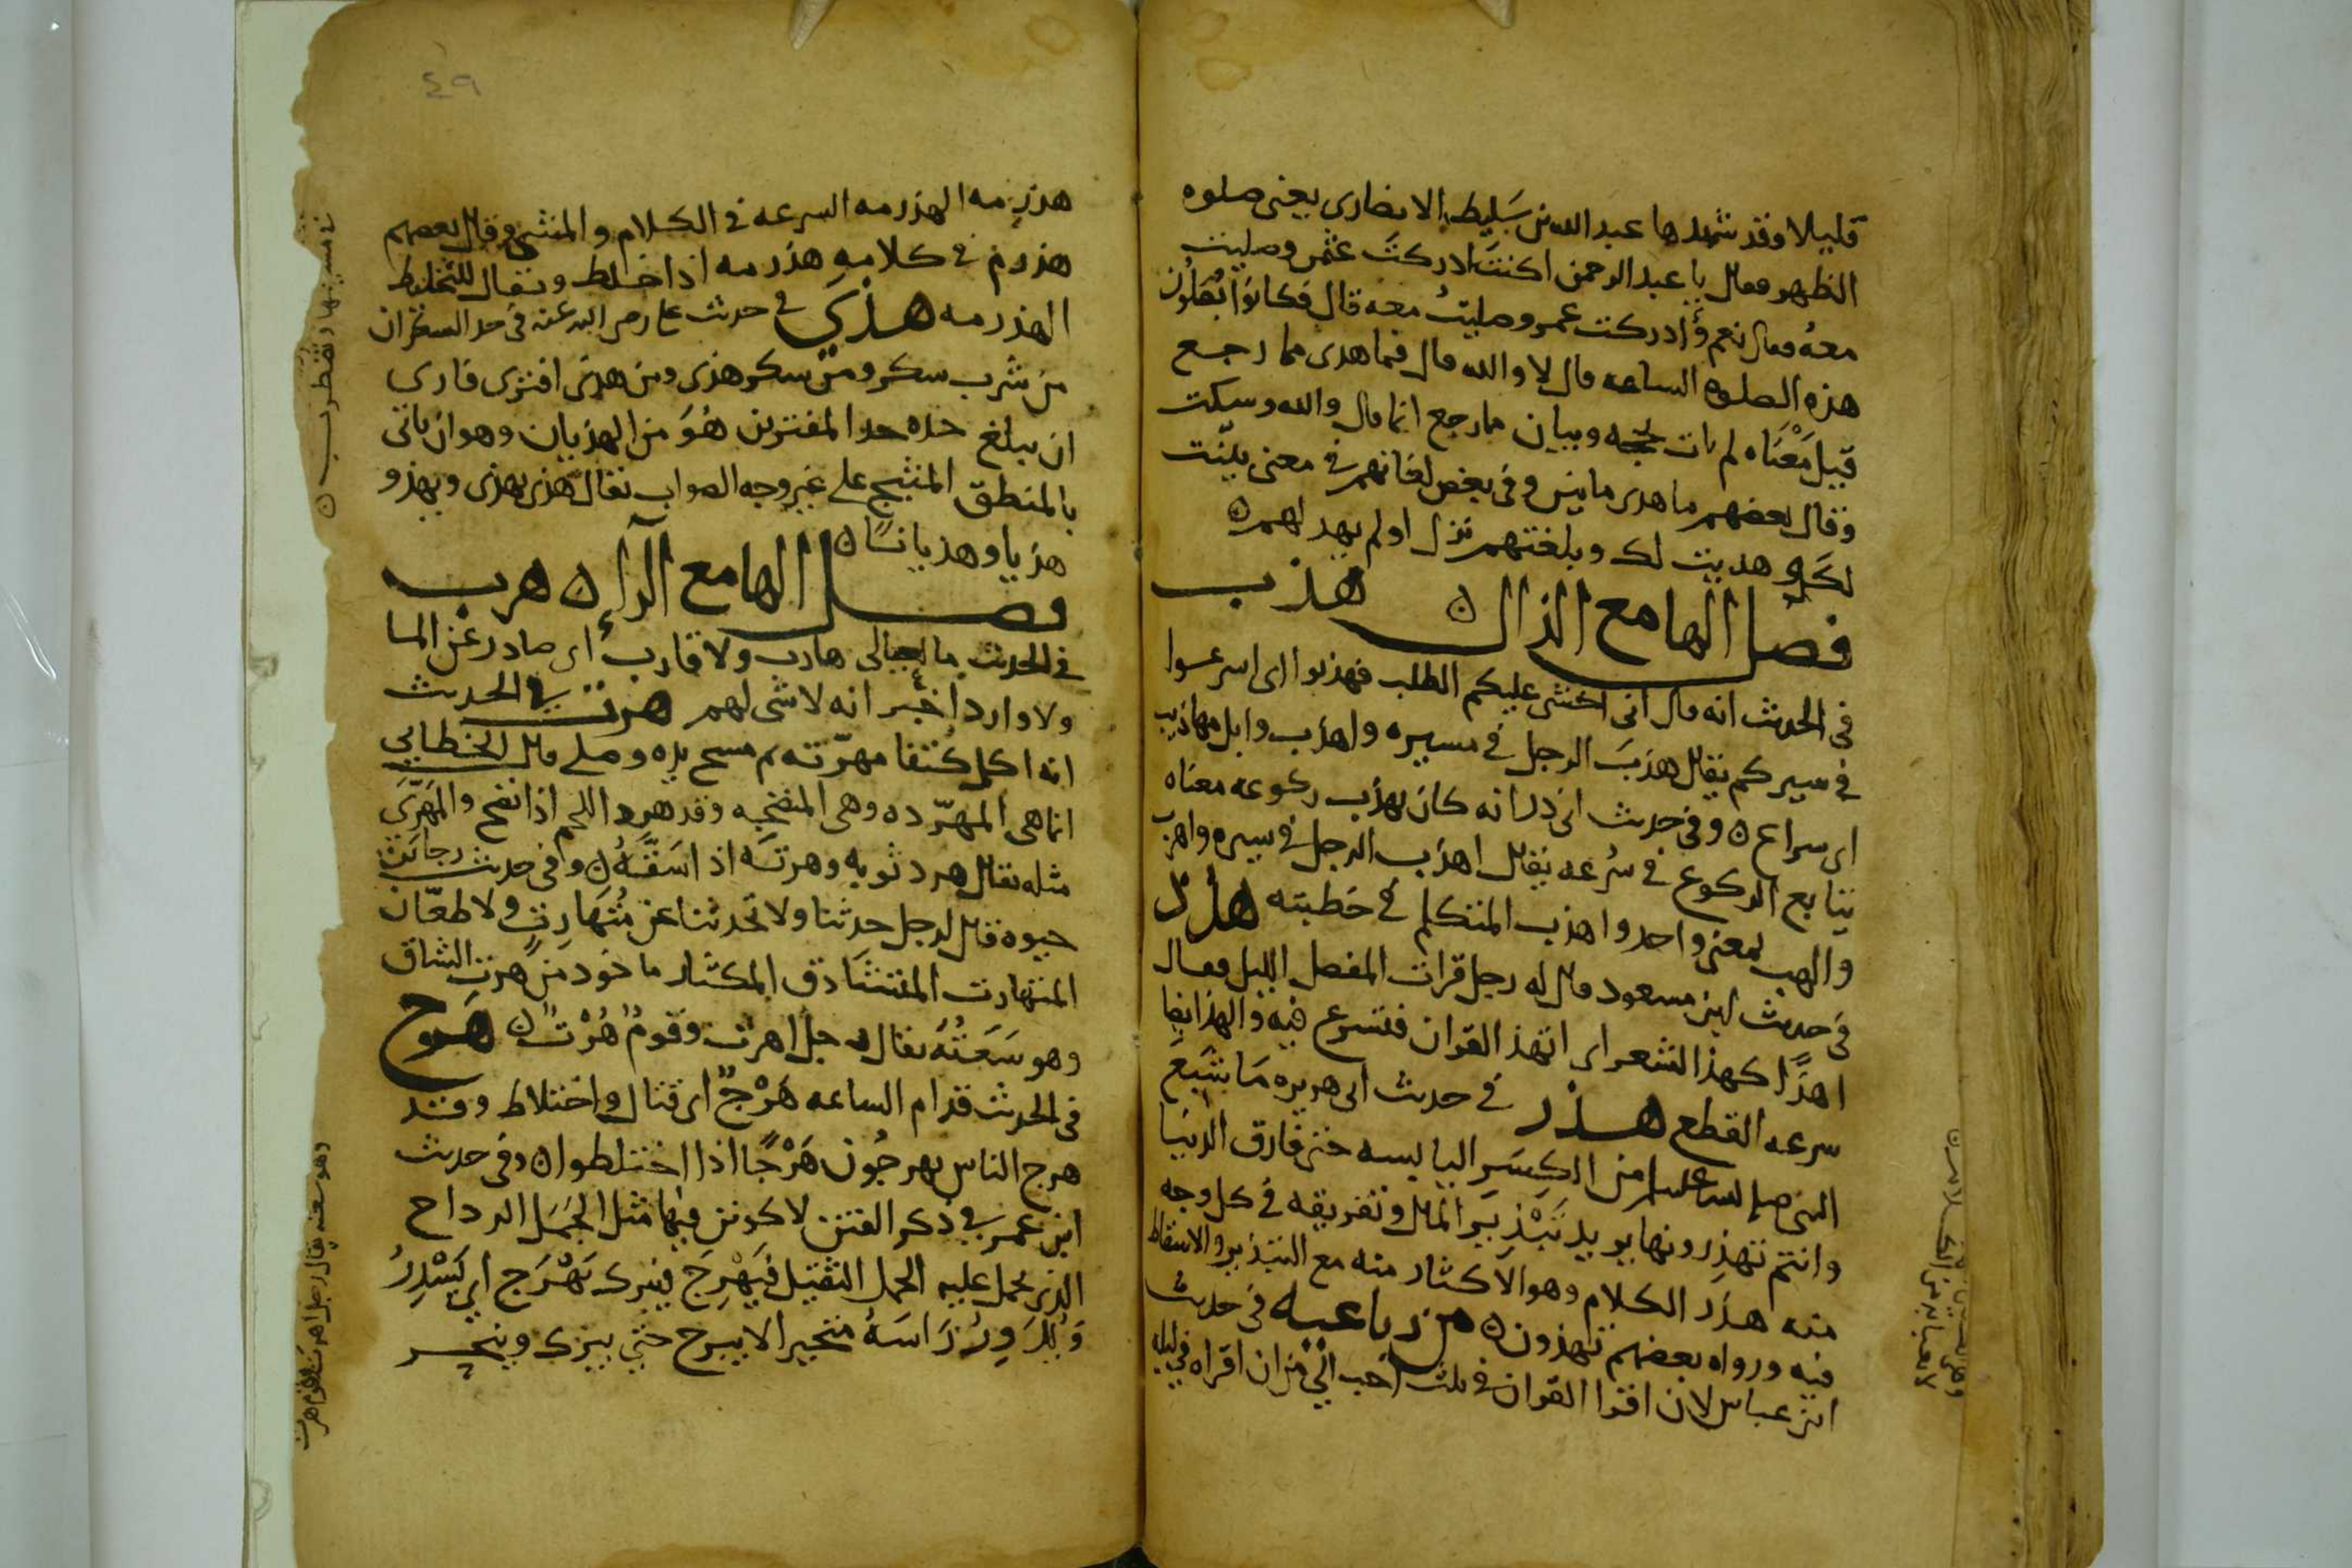 قليلا وقد شهدها عبد الله بن سَليط الانصارى يعنى صلوه
الظهر فقال يا عبد الرحمن اكنتَ ادركتَ عثمن وصليت
معهُ فقال نعم قال أدركت عمر وصليتُ معه قال فكانوا يُصَلّون
هذه الصلوه الساعه قال لا والله قال فما هدى مما رجع
قيل مَعْنَاه لم يات بحجه وبيان مارجع انما قال والله وسكت
وقال بعضهم ما هدى ما بيّن وفى بعض لغاتهم فى معنى بيّنت
لكَ هديت لك وبلغتهم نزل اولم يهد لهم ٥
فصل الها مع الذال ٥ هذب
فى الحديث انه قال انى اخشى عليكم الطلب فهذبوا اى اسرعوا
فى سيركم يقال هذبَ الرجل فى مسيره واهذب وابل مهاذيب
اى سراع ٥ وفى حديث ابى ذر انه كان يهذب ركوعه معناه
يتابع الركوع فى سُرعه يقال اهذب الرجل فى سيره واهرب
والهب بمعنى واحد واهذب المتكلم فى خطبته هذذ
فى حديث ابن مسعود قال له رجل قرات المفصل الليل فقال
اهذًّا كهذ الشعر اى اتهذ القران فتسرع فيه والهذ ايضا
سرعه القطع هذر فى حديث ابى هريره مَا شَبِعَ
النبى صلى الله عليه وسلم من الكِسَر اليابسه حتى فارق الدنيا
وانتم تهذِرونها يريد تَبْذِيرَ المال وتفريقه فى كل وجه
منه هذَر الكلام وهو الاكثار منه مع التبذير والاسقاط
فيه ورواه بعضهم تهذون ٥ من رباعيه فى حديث
ابن عباس لان اقرا القران فى ثلث احب الىّ من ان اقراه فى ليله
٤٩
هذرمه الهذرمه السرعه فى الكلام والمشى وقال بعضهم
هذرم فى كلامه هذرمه اذا خلط ويقال للتخليط
الهذرمه هذى فى حديث على رضى الله عنه فى حد السكران
من شرب سكر ومن سكر هذى ومن هذى افترى فارى
ان يبلغ حده حد المفترين هُوَ من الهذيان وهو ان ياتى
بالمنطق على غير وجه الصواب يقال هذى يهذى ويهذو
هذيا وهذيانًا ٥
فصل الها مع الرآء ٥ هرب
فى الحديث ما لعيالى هارب ولا قارب اى صادر عن الما
ولا وارد اخبر انه لا شى لهم هرت فى الحديث
انه اكل كتفا مهرّته ثم مسح يده وصلى قال الخطابى
انما هى المهرّده وهى المنضجه وقد هرد اللحم اذا نضج والمَهرّى
مثله يقال هرد ثوبه وهرتَه اذا شَقَّهُ ٥ وفى حديث رجا بن
حيوه قال لرجل حدثنا ولا تحدثنا عن مُتَهَارِتٍ ولا طعّان
المتهارت المتشادق المكثار ماخوذ من هرت الشاق
وهو سَعَتُهُ يقال رجل اهرت وقومٌ هُرْتٌ ٥ هَرج
فى الحديث قدام الساعه هَرْجٌ اى قتال واختلاط وقد
هرج الناس يهرجُون هَرْجًا اذا اختلطوا ٥ وفى حديث
ابن عمر فى ذكر الفتن لاكونن فيها مثل الجَمَل الرداح
الذى يحمل عليه الحمل الثقيل فَيَهْرَج فيبرك يَهْرَج اى يَسْدِرُ
متحيرا لا يبرح حتى يبرك وينحر
وهو سعته يقال رجل اهرت وقوم هرت